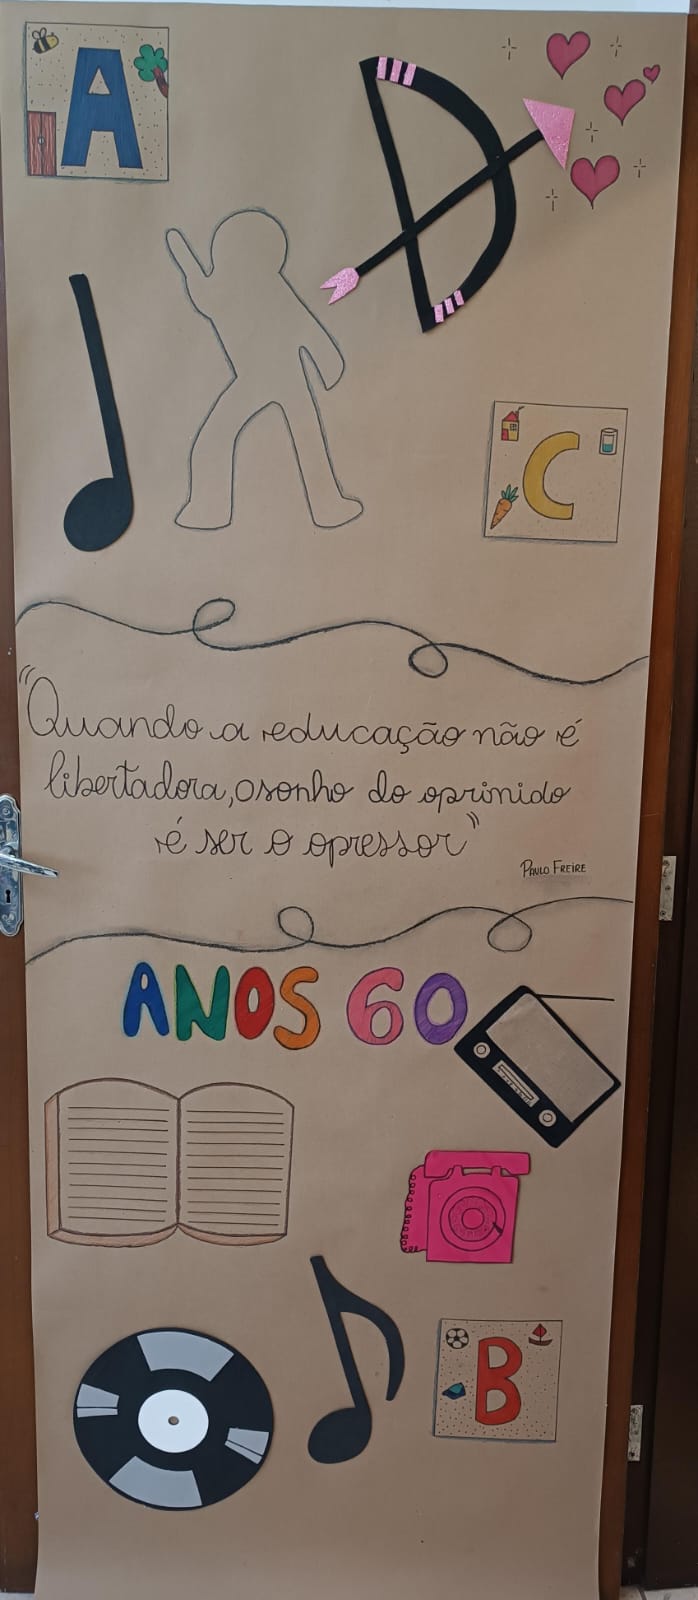 A
C
"Quando a educação não é
libertadora, o sonho do oprimido
é ser o opressor"
PAULO FREIRE
ANOS 60
B